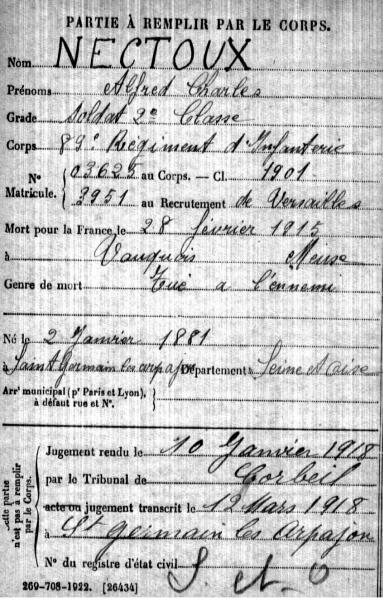 PARTIE À REMPLIR PAR LE CORPS.
Nom NECTOUX
Prénoms Alfred Charles
Grade Soldat 2e Classe
Corps 89e Régiment d'Infanterie
N° 03625 au Corps. — Cl. 1901
Matricule. 3951 au Recrutement de Versailles
Mort pour la France le 28 février 1915
à Vauquois Meuse
Genre de mort Tué a l'ennemi
Né le 2 Janvier 1881
à Saint Germain les arpajon Département Seine et Oise
Arrt municipal (pr Paris et Lyon),
à défaut rue et N°.
Cette partie
n'est pas à remplir
par le Corps.
Jugement rendu le 10 Janvier 1918
par le Tribunal de Corbeil
acte ou jugement transcrit le 12 Mars 1918
à St germain les Arpajon
N° du registre d'état civil S. N. O
269-708-1922. [26434]